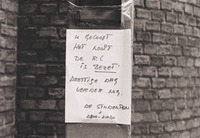 U GELOOFT
HET NOOIT
DE R.C.
IS BEZET
PRETTIGE DAG
VERDER NOG.
DE STUDENTEN